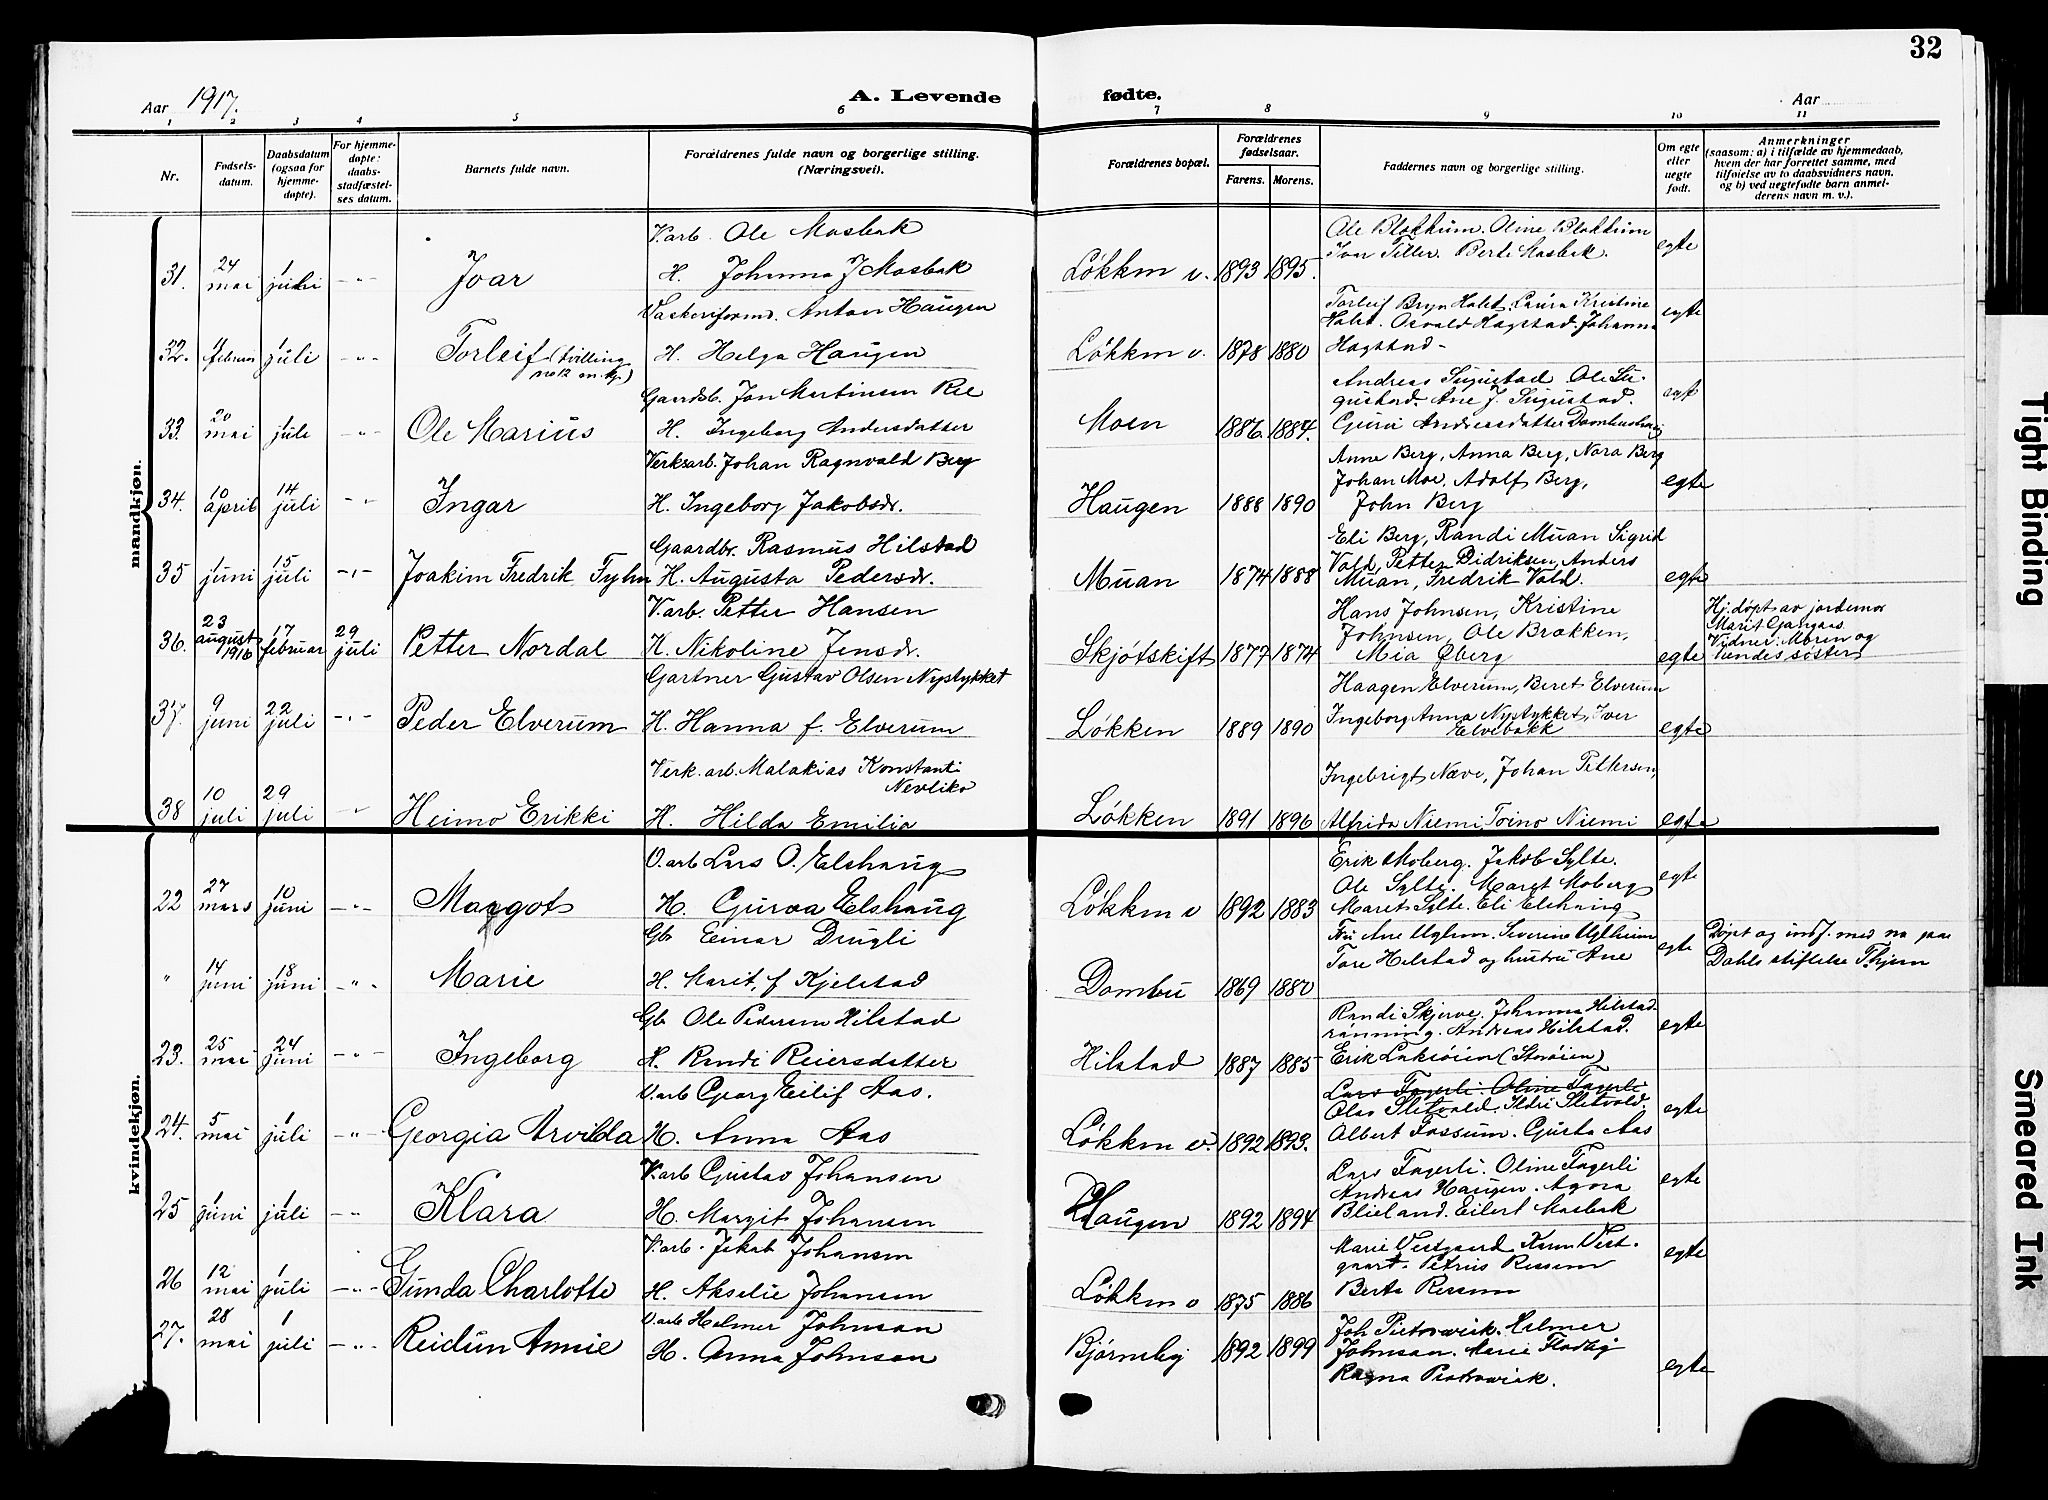 32
Aar 1917.
A. Levende fødte.
Aar
1 2 3 4 5 6 7 8 9 10 11
Nr.
Fødsels-
datum.
Daabsdatum
(ogsaa for
hjemme-
døpte).
For hjemme-
døpte:
daabs-
stadfæstel-
ses datum.
Barnets fulde navn.
Forældrenes fulde navn og borgerlige stilling.
(Næringsvei).
Forældrenes bopæl.
Forældrenes
fødselsaar.
Farens. Morens.
Faddernes navn og borgerlige stilling.
Om egte
eller
uegte
født.
Anmerkninger
(saasom: a) i tilfælde av hjemmedaab,
hvem der har forrettet samme, med
tilføielse av to daabsvidners navn,
og b) ved uegtefødte barn anmel-
derens navn m. v.).
mandkjøn.
31. 24 mai 1 juli Joar
V.arb. Ole Mosbak
H. Johanna J Mosbak
Løkken v. 1893 1895.
Ole Blokkum. Oline Blokkum
Ivar Tiller. Berte Mosbak.
egte
32. 1 februar 1 juli Torleif (tvilling
Vaskeriformd. Anton Haugen
H. Helga Haugen
Løkken v. 1878 1880
Torleif Bryn Holst. Laura Kristine
Holst. Osvald Hagstad. Johanna
Hagstad
egte
33. 20 mai 1 juli Ole Marius
Gaardsb. Jon Martinsen Ree
H. Ingeborg Andersdatter
Moen 1886 1884.
Andreas Sugustad Ole Su-
gustad. Ane J. Sugustad.
Guru Andreasdatter
34. 10 april 14 juli Ingar
Verksarb. Johan Ragnvald Berg
H. Ingeborg Jakobsdr.
Haugen 1888 1890
Anne Berg, Anna Berg, Nora Berg
Johan Moe, Adolf Berg,
John Berg
egte
35 1 juni 15 juli Joakim Fredrik Fyhn
Gaardbr. Rasmus Hilstad
H. Augusta Pedersdr.
Muan 1874 1888
Eli Berg, Randi Muan Sigrid
Vold, Petter Didriksen, Anders
Muan, Fredrik Vold.
egte
36. 23 august 1916 17 februar 29 juli Petter Nordal
V.arb. Petter Hansen
H. Nikoline Jensdr.
Skjøtskift 1877 1874
Hans Johnsen, Kristine
Johnsen, Ole Brækken,
Mia Øberg
egte
Hj.døpt av jordemor
Marit Gangaas.
Vidner: Moren og
søster
37. 9 juni 22 juli Peder Elverum
Gartner Gustav Olsen Nystykket
H. Hanna f. Elverum
Løkken 1889 1890
Haagen Elverum, Beret Elverum
Ingeborg Anna Nystykket, Iver
Elvebakk
egte
38 10 juli 29 juli Heimo Erikki
Verk.arb. Malakias Konstanti
Nevliko
H. Hilda Emilia
Løkken 1891 1896
Ingebrigt Næve, Johan Pettersen,
Alfrida Niemi, Toino Niemi
egte
kvindekjøn.
22 27 mars 10 juni Margot
V.arb Lars O. Elshaug
H. Gurva Elshaug
Løkken v 1892 1883
Erik Moberg. Jakob Sylte.
Ole Sylte. Maret Moberg
Maret Sylte. Eli Elshaug
egte
" 14 juni 18 juni Marie
Gb Einar Drugli
H. Marit, f Kjelstad
Dombu 1869 1880
Fru Ane Uglum. Severine Uglheim
Tore Hilstad og hustru Ane
egte
Døpt og indf. med no paa
Dahls stiftelse Thjem
23. 25 mai 24 juni Ingeborg
Gb Ole Pedersen Hilstad
H. Randi Reiersdatter
Hilstad 1887 1885
Randi Skjerve. Johanna Hilstad-
rønning. Andreas Hilstad.
Erik Laksøien (Storøien)
egte
24. 5 mai 1 juli Georgia Arvilda
V.arb Georg Eilif Aas.
H. Anna Aas
Løkken v. 1892 1893.
Lars Fagerli. Oline Fagerli
Olas Sletvold. Ildri Sletvold.
Albert Fossum. Gusta Aas
egte
25 1 juni 1 juli Klara
V.arb Gustav Johansen
H. Margit Johansen
Haugen 1892 1894
Lars Fagerli. Oline Fagerli
Andreas Haugen. Agora
Blieland. Eilert Mosbak
egte
26 12 mai 1 juli Gunda Charlotte
V.arb. Jakob Johansen
H. Akselie Johansen
Løkken v 1875 1886
Marie Vestgaard Karen Vest-
gaard. Petrus Ressem
Berta Ressem
egte
27. 28 mai 1 juli Reidun Annie
V.arb Helmer Johnson
H. Anna Johnson
Bjørnsby 1892 1899
Joh Pietrowick. Helmer
Johnson. Marie Flodby
Ragna Pietrowick.
egte
Tight Binding
Smeared Ink